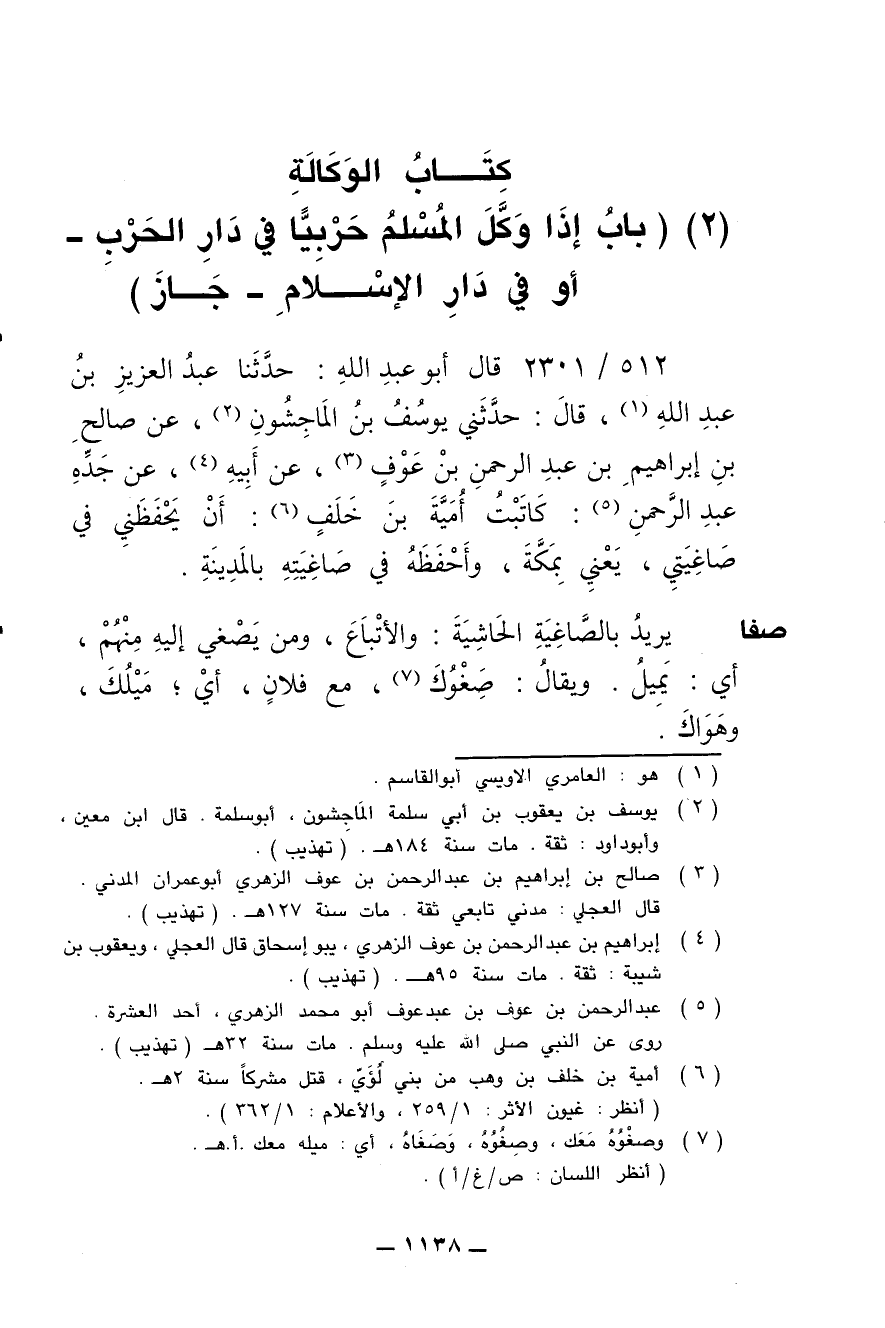 كِتَـــابُ الوَكَالَةِ
(٢) ( بابُ إذَا وَكَّلَ المُسْلمُ حَرْبِيًّا في دَارِ الحَرْبِ ـ
أو في دَارِ الإسْـــلامِ ـ جَـــازَ )
٥١٢ / ٢٣٠١ قال أبو عبدِ اللهِ : حدَّثَنا عبدُ العزيزِ بنُ
عبدِ اللهِ (١) ، قالَ : حدَّثَني يوسُفُ بنُ المَاجِشُونِ (٢) ، عن صالحِ
بنِ إبراهيمِ بن عبدِ الرحمنِ بنْ عَوْفٍ (٣) ، عن أَبِيهِ (٤) ، عن جَدِّهِ
عبدِ الرَّحمنِ (٥) : كَاتَبْتُ أُمَيَّةَ بنَ خَلَفٍ (٦) : أَنْ يَحْفَظَني في
صَاغِيَتي ، يَعْني بِمَكَّةَ ، وأَحْفَظَهُ في صَاغِيَتِهِ بالمَدِينَةِ .
صغا يريدُ بالصَّاغِيَةِ الحَاشِيَةَ : والأتْبَاعَ ، ومن يَصْغي إليهِ مِنْهُمْ ،
أي : يَمِيلُ . ويقالُ : صَِغْوُكَ (٧) ، مع فلانٍ ، أيْ ؛ مَيْلُكَ ،
وهَوَاكَ .
(١) هو : العامري الاويسي أبوالقاسم .
(٢) يوسف بن يعقوب بن أبي سلمة المَاجِشون ، أبوسلمة . قال ابن معين ،
وأبوداود : ثقة . مات سنة ١٨٤هـ . ( تهذيب ) .
(٣) صالح بن إبراهيم بن عبدالرحمن بن عوف الزهري أبوعمران المدني .
قال العجلي : مدني تابعي ثقة . مات سنة ١٢٧هـ . ( تهذيب ) .
(٤) إبراهيم بن عبدالرحمن بن عوف الزهري ، يبو إسحاق قال العجلي ، ويعقوب بن
شيبة : ثقة . مات سنة ٩٥هـ . ( تهذيب ) .
(٥) عبدالرحمن بن عوف بن عبدعوف أبو محمد الزهري ، أحد العشرة .
روى عن النبي صلى الله عليه وسلم . مات سنة ٣٢هـ ( تهذيب ) .
(٦) أمية بن خلف بن وهب من بني لُؤَيّ ، قتل مشركاً سنة ٢هـ .
( أنظر : غيون الأثر : ٢٥٩/١ ، والأعلام : ٣٦٢/١ ) .
(٧) وصغْوُهُ مَعَك ، وصِغُوُهُ ، وَصَغَاهُ ، أي : ميله معك .أ.هـ .
( أنظر اللسان : ص/غ/أ ) .
ـ ١١٣٨ ـ